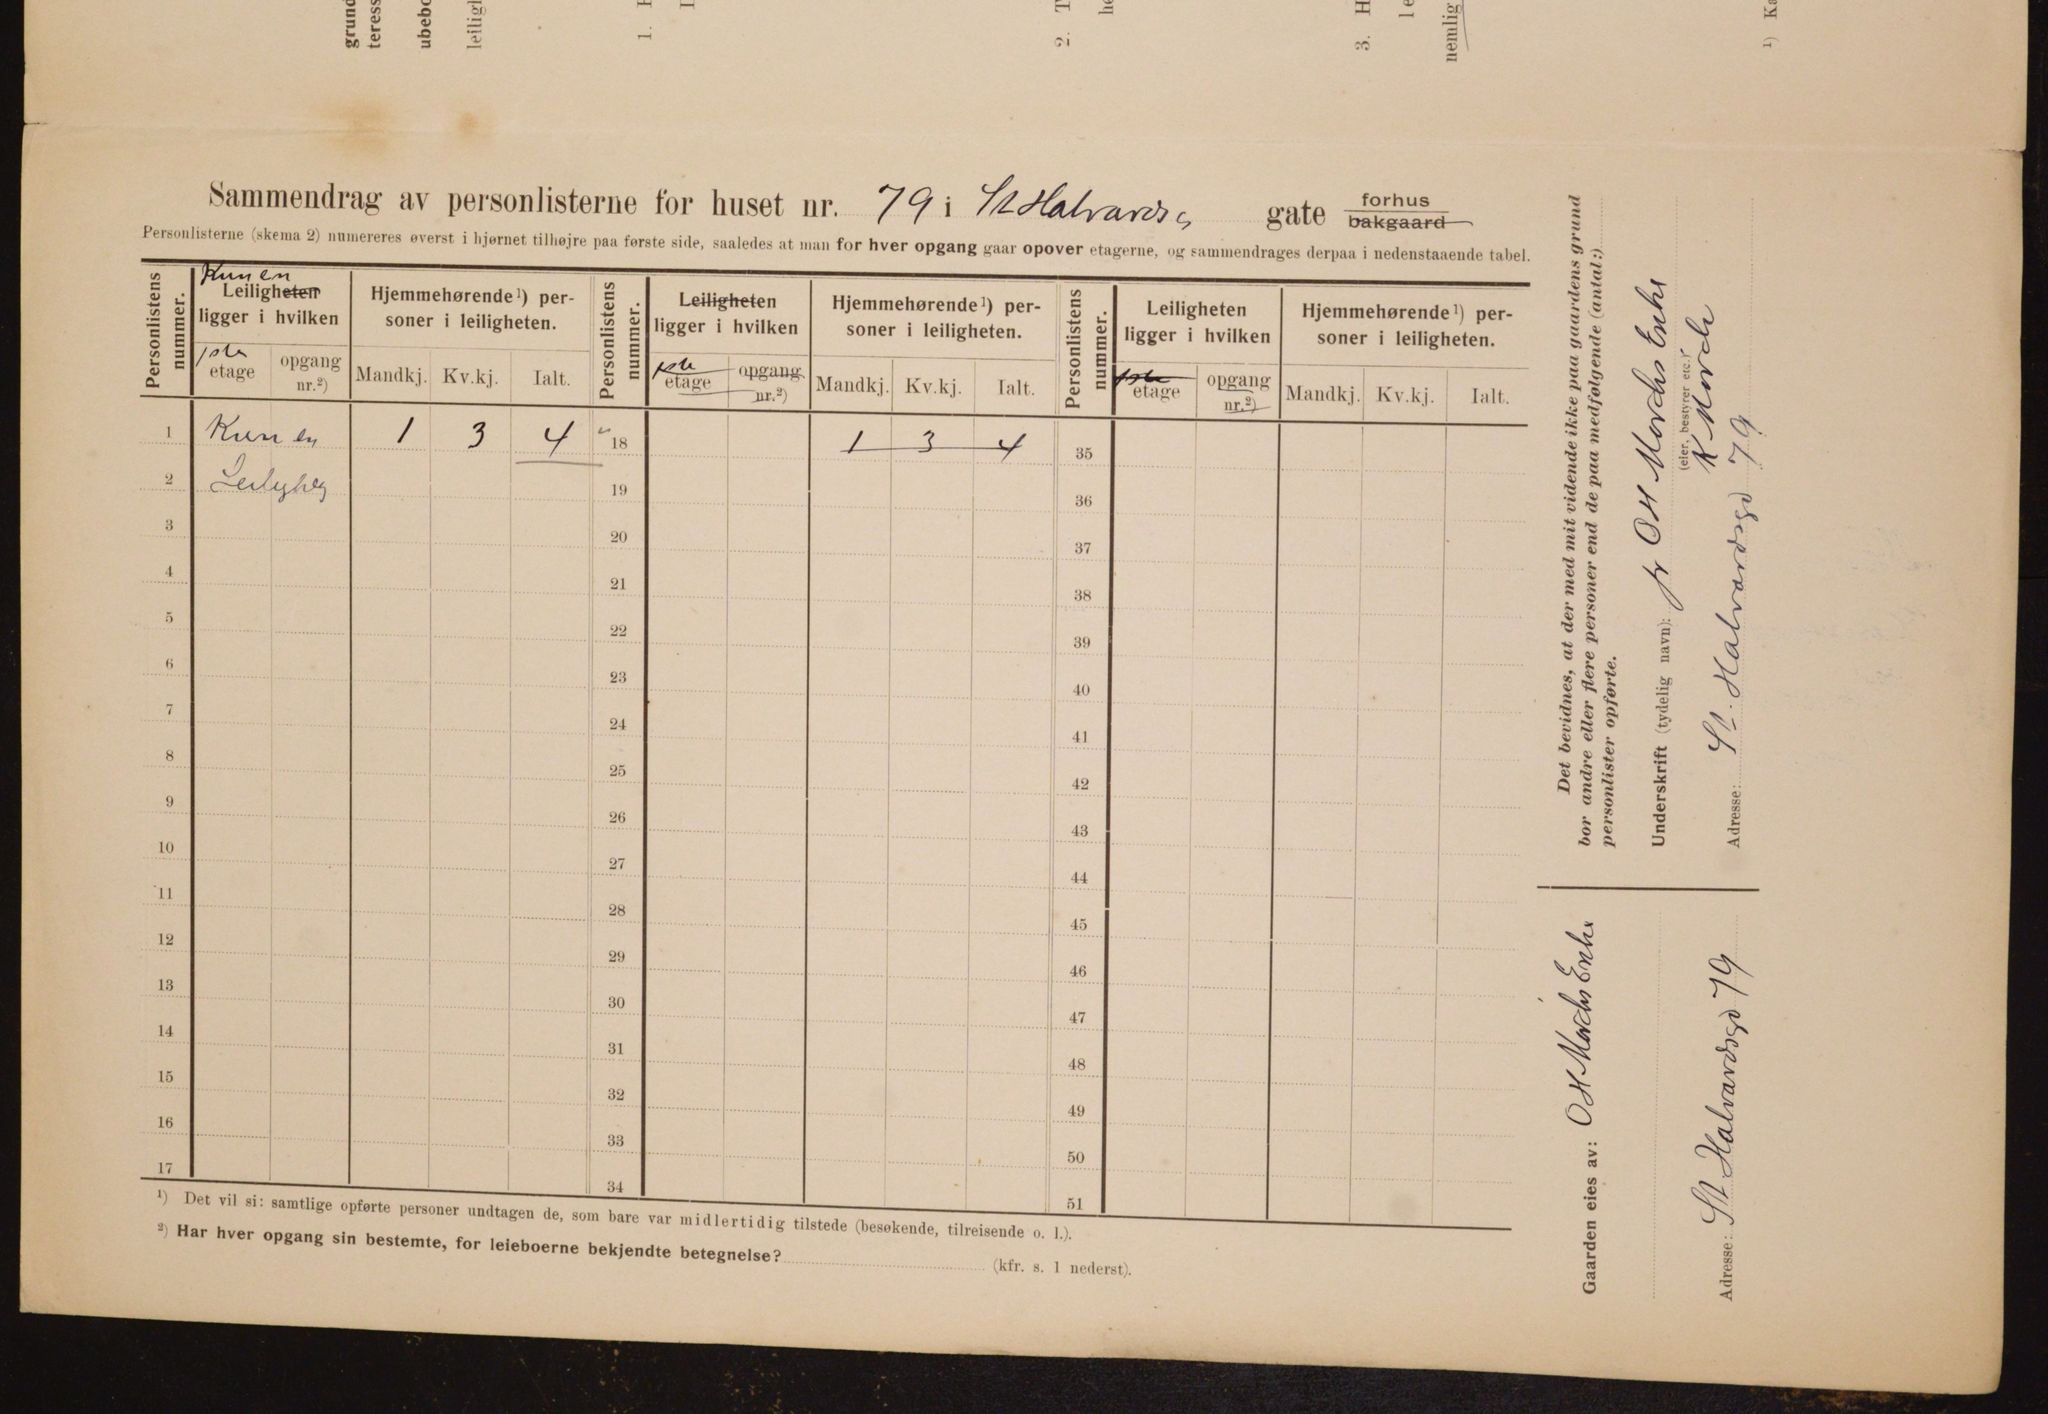 grund
teress
ubebo
leiligh
1.
2. T
he
3. H
le
nemlig
1) Ka
Sammendrag av personlisterne for huset nr. 79 i St Halvardsg gate forhus bakgaard
Personlisterne (skema 2) numereres øverst i hjørnet tilhøjre paa første side, saaledes at man for hver opgang gaar opover etagerne, og sammendrages derpaa i nedenstaaende tabel.
Personlistens nummer.
Kun en
Leiligheten ligger i hvilken
1ste etage
opgang nr.2)
Hjemmehørende1) personer i leiligheten.
Mandkj. Kv.kj. Ialt.
Personlistens nummer.
Leiligheten ligger i hvilken
1ste etage
opgang nr.2)
Hjemmehørende1) personer i leiligheten.
Mandkj. Kv.kj. Ialt.
Personlistens nummer.
Leiligheten ligger i hvilken
1ste etage
opgang nr.2)
Hjemmehørende1) personer i leiligheten.
Mandkj. Kv.kj. Ialt.
1 Kun en 1 3 4 18 1 3 4 35
2 19 36
3 20 37
4 21 38
5 22 39
6 23 40
7 24 41
8 25 42
9 26 43
10 27 44
11 28 45
12 29 46
13 30 47
14 31 48
15 32 49
16 33 50
17 34 51
1) Det vil si: samtlige opførte personer undtagen de, som bare var midlertidig tilstede (besøkende, tilreisende o. l.).
2) Har hver opgang sin bestemte, for leieboerne bekjendte betegnelse? (kfr. s. 1 nederst).
Det bevidnes, at der med mit vidende ikke paa gaardens grund
bor andre eller flere personer end de paa medfølgende (antal:)
personlister opførte.
Underskrift (tydelig navn): pr OH Morchs Enke
(eier, bestyrer etc.)
K Morch
Adresse: St. Halvardsgd 79
Gaarden eies av: OH Morchs Enke
Adresse: St Halvardsgd 79